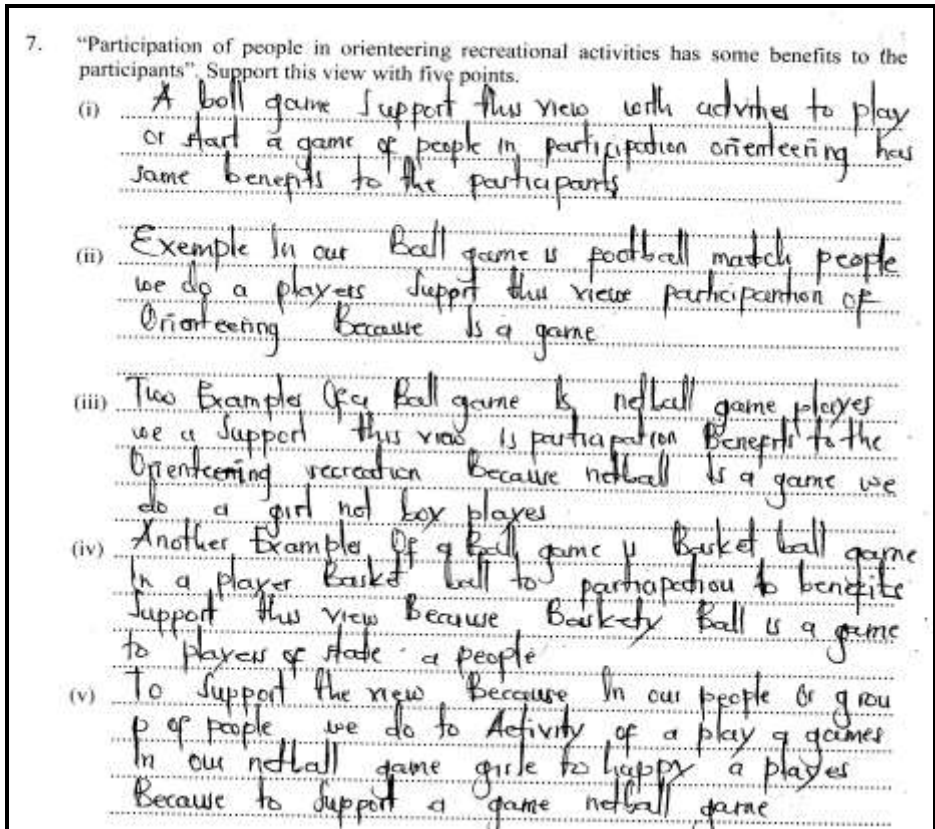 7. “Participation of people in orienteering recreational activities has some benefits to the
participants”. Support this view with five points.
(i) A boll game Support this view with advities to play
or start a game of people in participation orienteering has
same benefits to the participants
(ii) Exemple In our Ball game is football match people
we do a players Support this view participantion of
Orienteering Because Is a game
(iii) Two Examples Of a Ball game Is netball game playes
we a Support this view is partiapation Benefits to the
Orienteering recreation Because netball Is a game we
do a girl not boy playes
(iv) Another Examples Of a Ball game is Basket ball game
In a player Basket ball to partiapation to benefits
Support this view Because Baskety Ball is a game
to players of state a people
(v) To Support the new Because In our people or grou
p of people we do to Activity of a play a games
In our netball game girle to happy a playes
Because to Support a game netball game